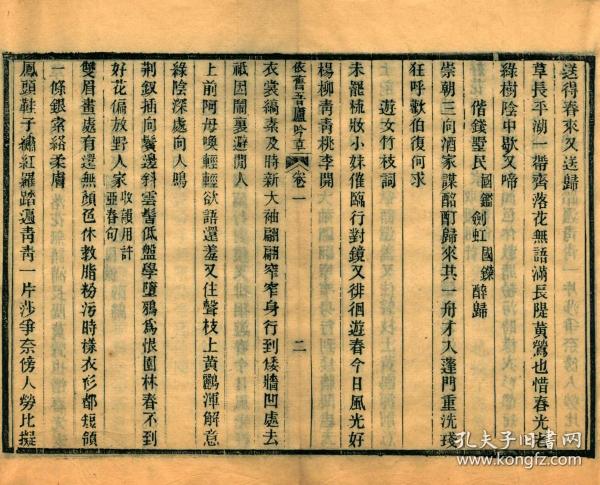 送得春來又送歸
草長平湖一帶齊落花無語滿長隄黃鶯也惜春光老
綠樹陰中歇又啼
偕錢墅民國鑑劍虹國鑅醉歸
崇朝三向酒家謀酩酊歸來共一舟才入蓬門重洗琖
狂呼歡伯復何求
遊女竹枝詞
未罷梳妝小妹催臨行對鏡又徘徊遊春今日風光好
楊柳青青桃李開
依舊吾廬吟草 卷一 二
衣裳縞素及時新大袖翩翩窄窄身行到矮牆凹處去
祇因閙裏避閒人
上前阿母喚輕輕欲語還羞又住聲枝上黃鸝渾解意
綠陰深處向人鳴
荆釵插向鬢邊斜雲髻低盤學墮鴉為恨園林春不到
好花偏放野人家收護用計亞春句
雙眉畫處有還無顏色休教脂粉污時樣衣衫都短領
一條銀索絡柔膚
鳳頭鞋子繡紅羅踏遍青青一片莎爭奈傍人勞比擬
孔夫子旧書网
www.kongfz.com